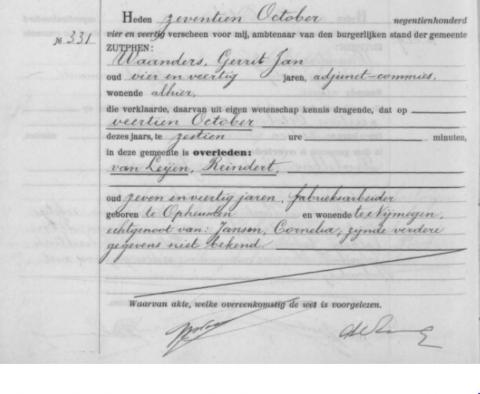 Heden zeventien October negentienhonderd
№ 331
vier en veertig verscheen voor mij, ambtenaar van den burgerlijken stand der gemeente
ZUTPHEN:
Waanders, Gerrit Jan
oud vier en veertig jaren, adjunct-commies,
wonende alhier,
die verklaarde, daarvan uit eigen wetenschap kennis dragende, dat op
veertien October
dezes jaars, te zestien ure minuten,
in deze gemeente is overleden:
van Leijen, Reindert,
oud zeven en veertig jaren, fabrieksarbeider
geboren te Opheusden en wonende te Nijmegen,
echtgenoot van: Janson, Cornelia, zijnde verdere
gegevens niet bekend
Waarvan akte, welke overeenkomstig de wet is voorgelezen.